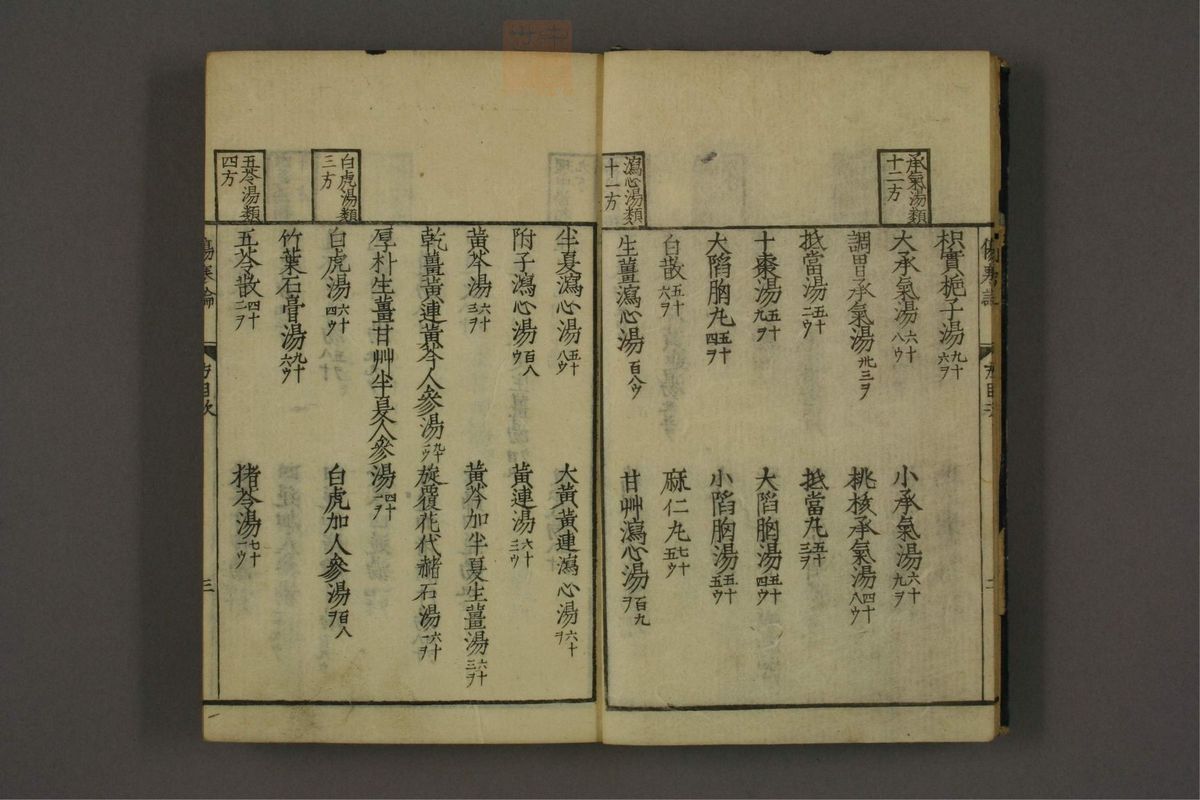 傷寒論
方目次
二
枳實梔子湯九十六ヲ
承氣湯類十二方
大承氣湯六十八ウ
小承氣湯六十九ヲ
調胃承氣湯卅三ヲ
桃核承氣湯四十八ウ
抵當湯五十二ウ
抵當丸五十三ヲ
十棗湯五十九ヲ
大陷胸湯五十四ウ
大陷胸丸五十四ヲ
小陷胸湯五十五ウ
白散五十六ヲ
麻仁丸七十五ウ
瀉心湯類十一方
生薑瀉心湯百八ウ
甘艸瀉心湯百九ヲ
半夏瀉心湯五十八ウ
大黃黃連瀉心湯六十ヲ
附子瀉心湯百八ウ
黃連湯六十三ウ
黃芩湯六十三ヲ
黃芩加半夏生薑湯六十三ヲ
乾薑黃連黃芩人參湯
旋覆花代赭石湯六十一ヲ
厚朴生薑甘艸半夏人參湯四十一ヲ
白虎湯類三方
白虎湯六十四ウ
白虎加人參湯百八ヲ
竹葉石膏湯九十六ウ
五苓湯類四方
五苓散四十二ヲ
猪苓湯七十一ウ
傷寒論
方目次
三